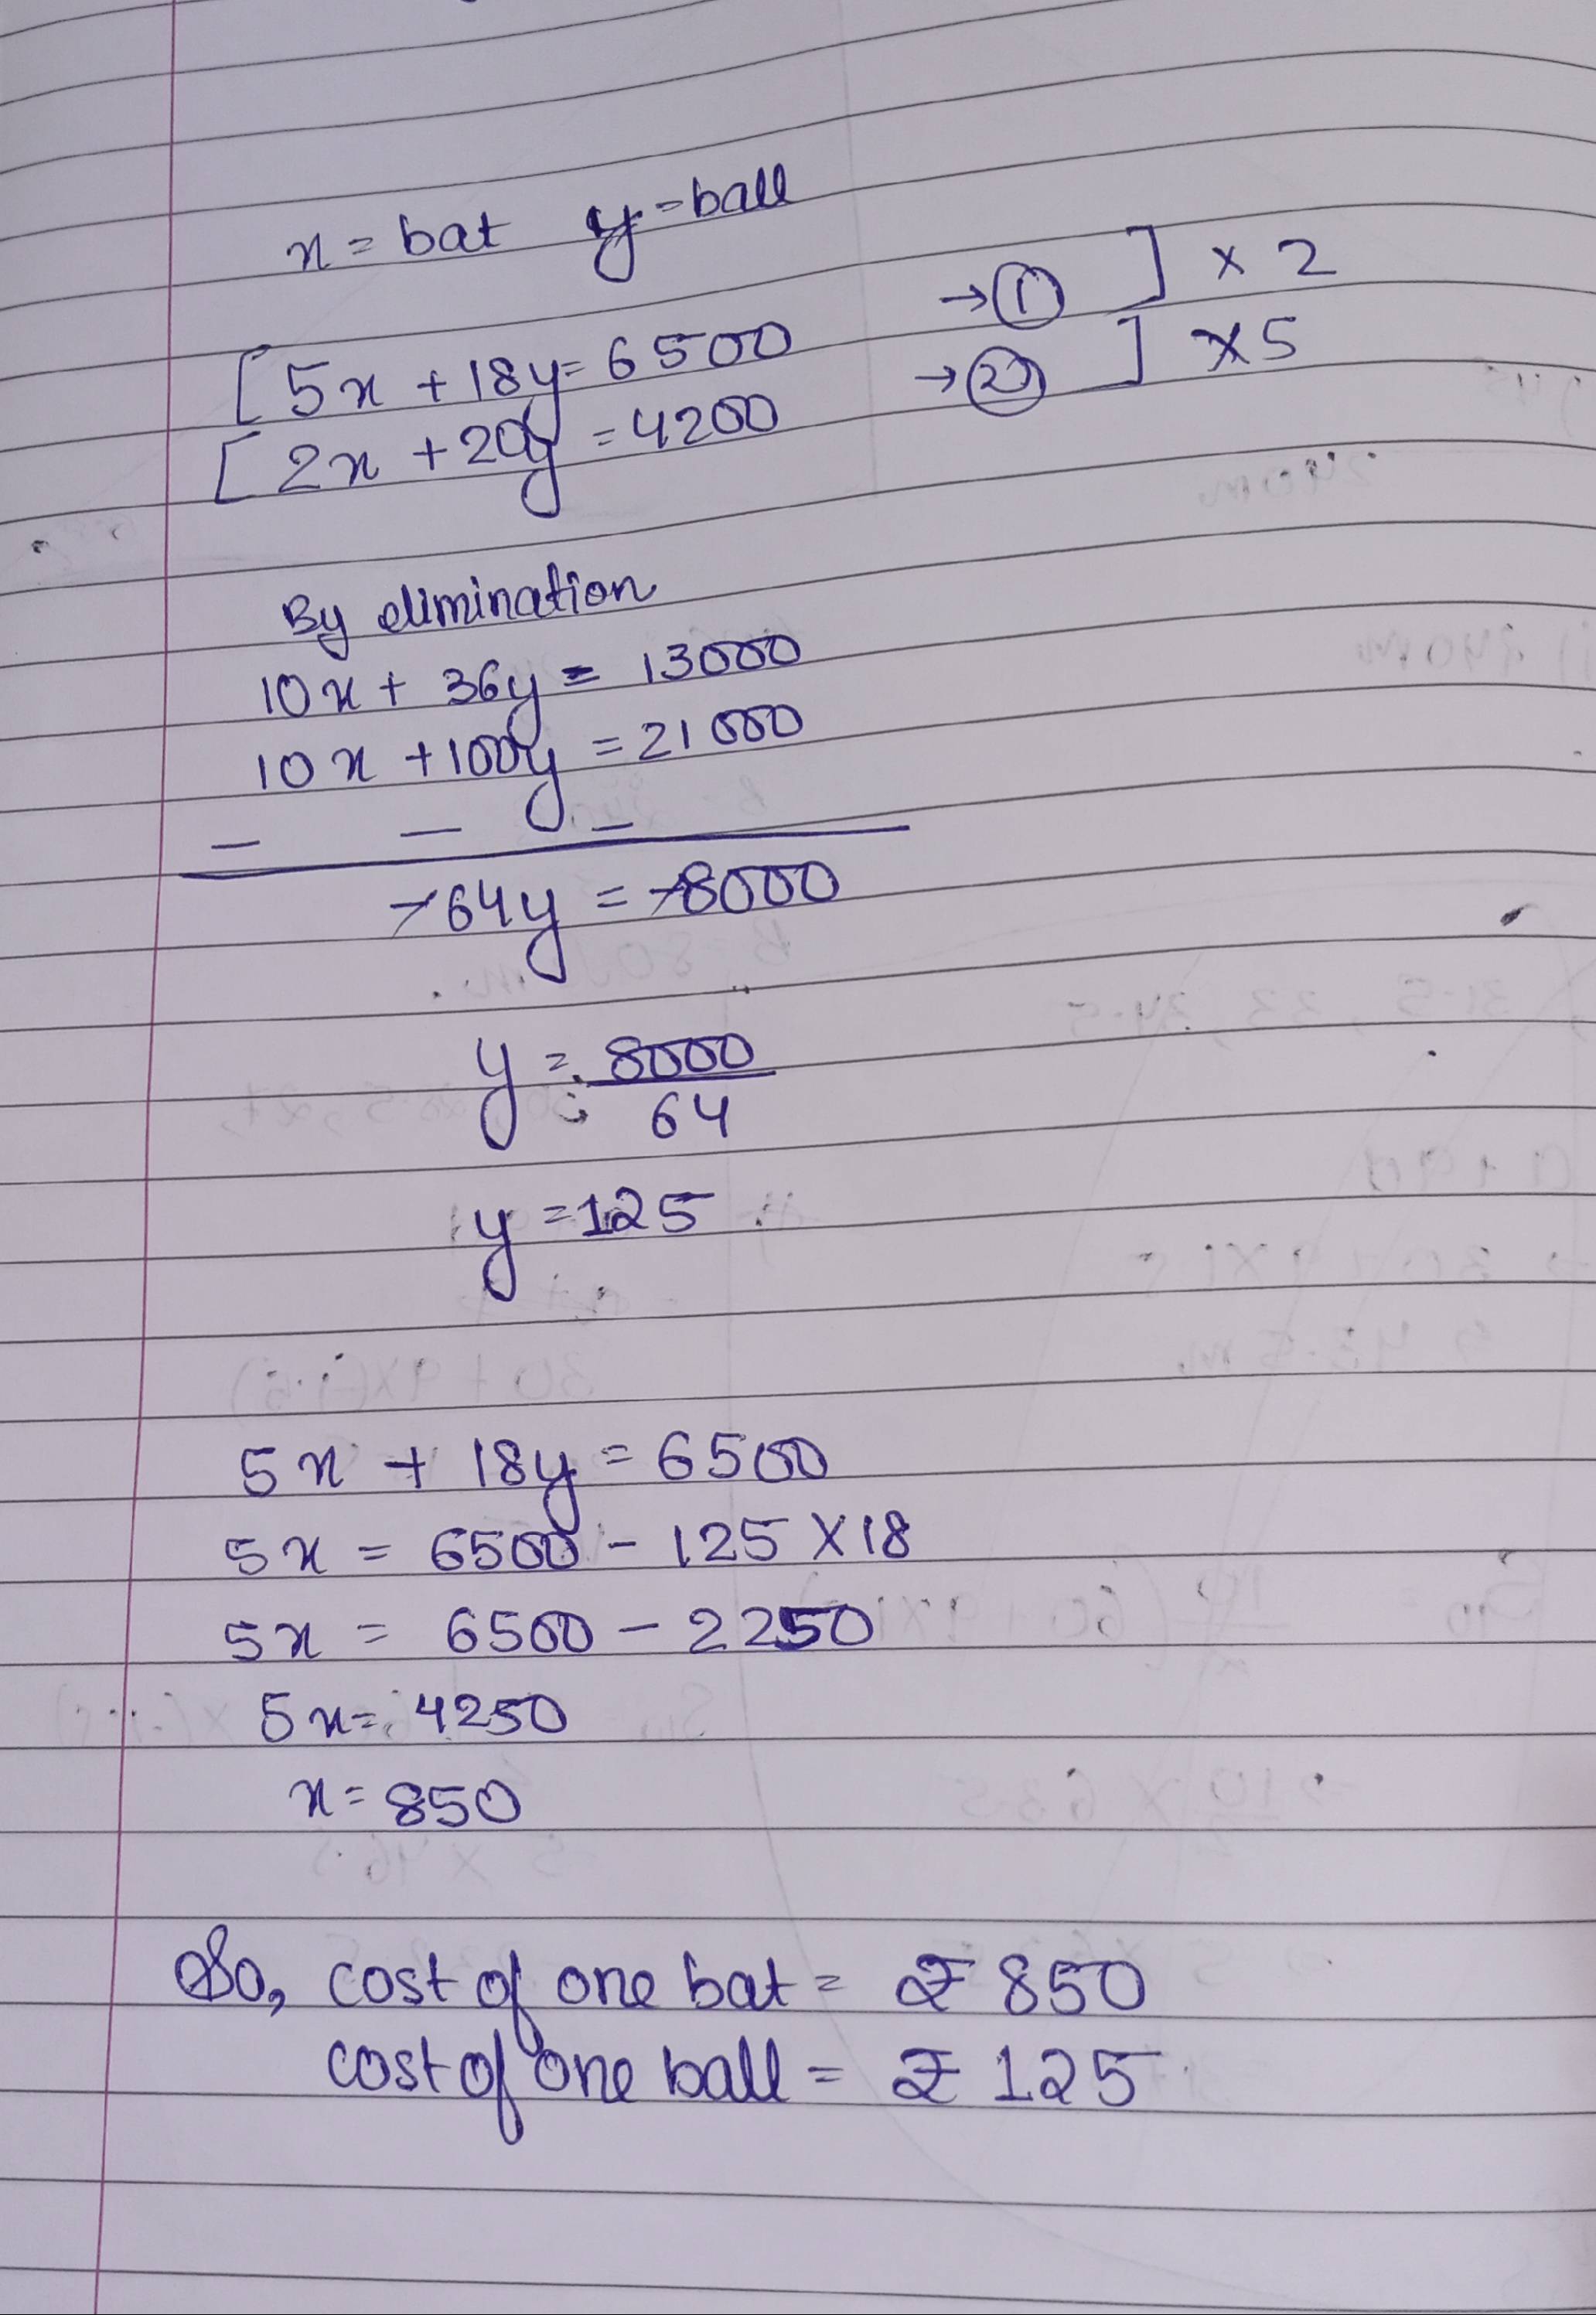 x = bat y = ball
[ 5x + 18y = 6500 → ① ] × 2
[ 2x + 20y = 4200 → ② ] × 5
By elimination
10x + 36y = 13000
10x + 100y = 21000
— — —
-64y = -8000
y = 8000
64
y = 125
5x + 18y = 6500
5x = 6500 - 125 × 18
5x = 6500 - 2250
5x = 4250
x = 850
So, cost of one bat = ₹ 850
cost of one ball = ₹ 125